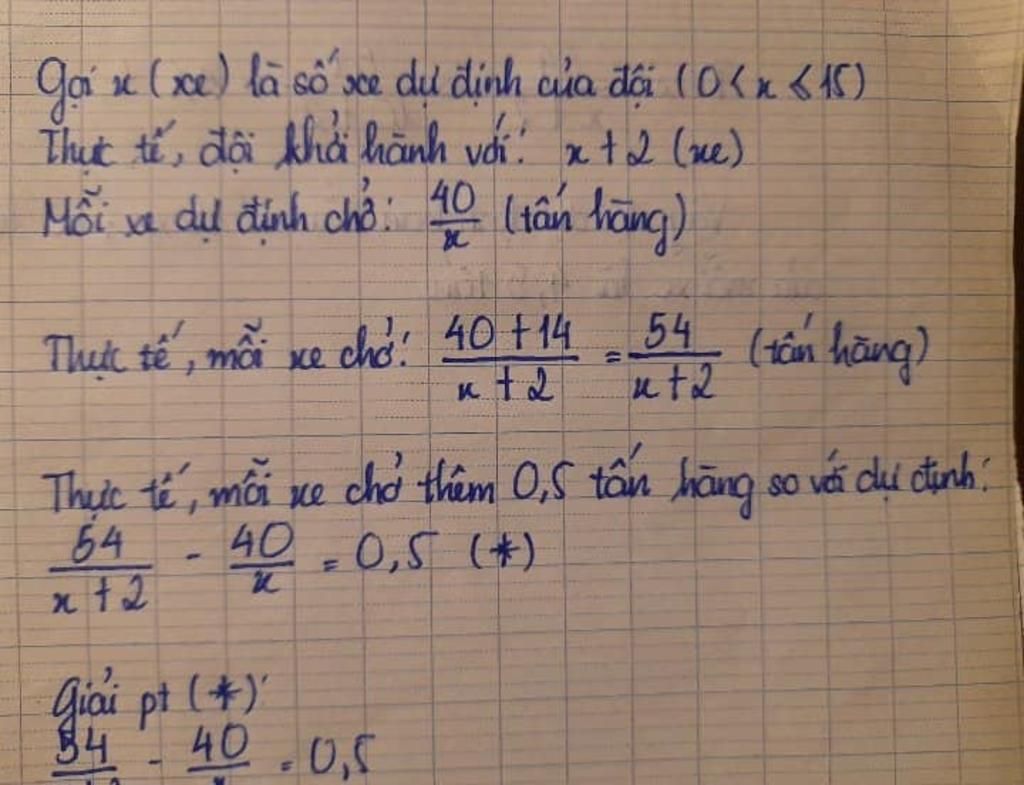 Gọi x (xe) là số xe dự định của đội (0 < x ≤ 15)
Thực tế, đội khởi hành với: x + 2 (xe)
Mỗi xe dự định chở: 40/x (tấn hàng)
Thực tế, mỗi xe chở: (40 + 14)/(x + 2) = 54/(x + 2) (tấn hàng)
Thực tế, mỗi xe chở thêm 0,5 tấn hàng so với dự định:
54/(x + 2) - 40/x = 0,5 (*)
Giải pt (*)
54/(x + 2) - 40/x = 0,5